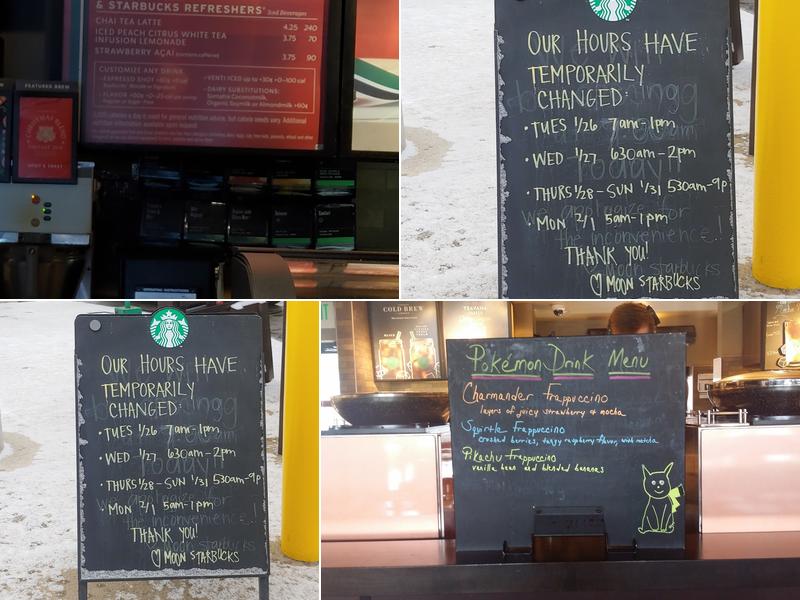 & STARBUCKS REFRESHERS® Iced Beverages
CHAI TEA LATTE 4.25 240
ICED PEACH CITRUS WHITE TEA
INFUSION LEMONADE 3.75 70
STRAWBERRY AÇAÍ 3.75 90
CUSTOMIZE ANY DRINK
• VENTI ICED up to +30¢ +0–100 cal
• DAIRY SUBSTITUTIONS:
Sumatra Coconutmilk,
Organic Soymilk or Almondmilk +60¢
FEATURED BREW
OUR HOURS HAVE
TEMPORARILY
CHANGED:
• TUES 1/26 7am-1pm
• WED 1/27 630am-2pm
• THURS 1/28 - SUN 1/31 530am-9p
• MON 2/1 5am-1pm
THANK YOU!
♡ MOON STARBUCKS
OUR HOURS HAVE
TEMPORARILY
CHANGED:
• TUES 1/26 7am-1pm
• WED 1/27 630am-2pm
• THURS 1/28 - SUN 1/31 530am-9p
• MON 2/1 5am-1pm
THANK YOU!
♡ MOON STARBUCKS
COLD BREW
Pokémon Drink Menu
Charmander Frappuccino
layers of juicy strawberry & mocha
Squirtle Frappuccino
crushed berries, tangy raspberry flavor, with matcha
Pikachu Frappuccino
vanilla bean and blended bananas